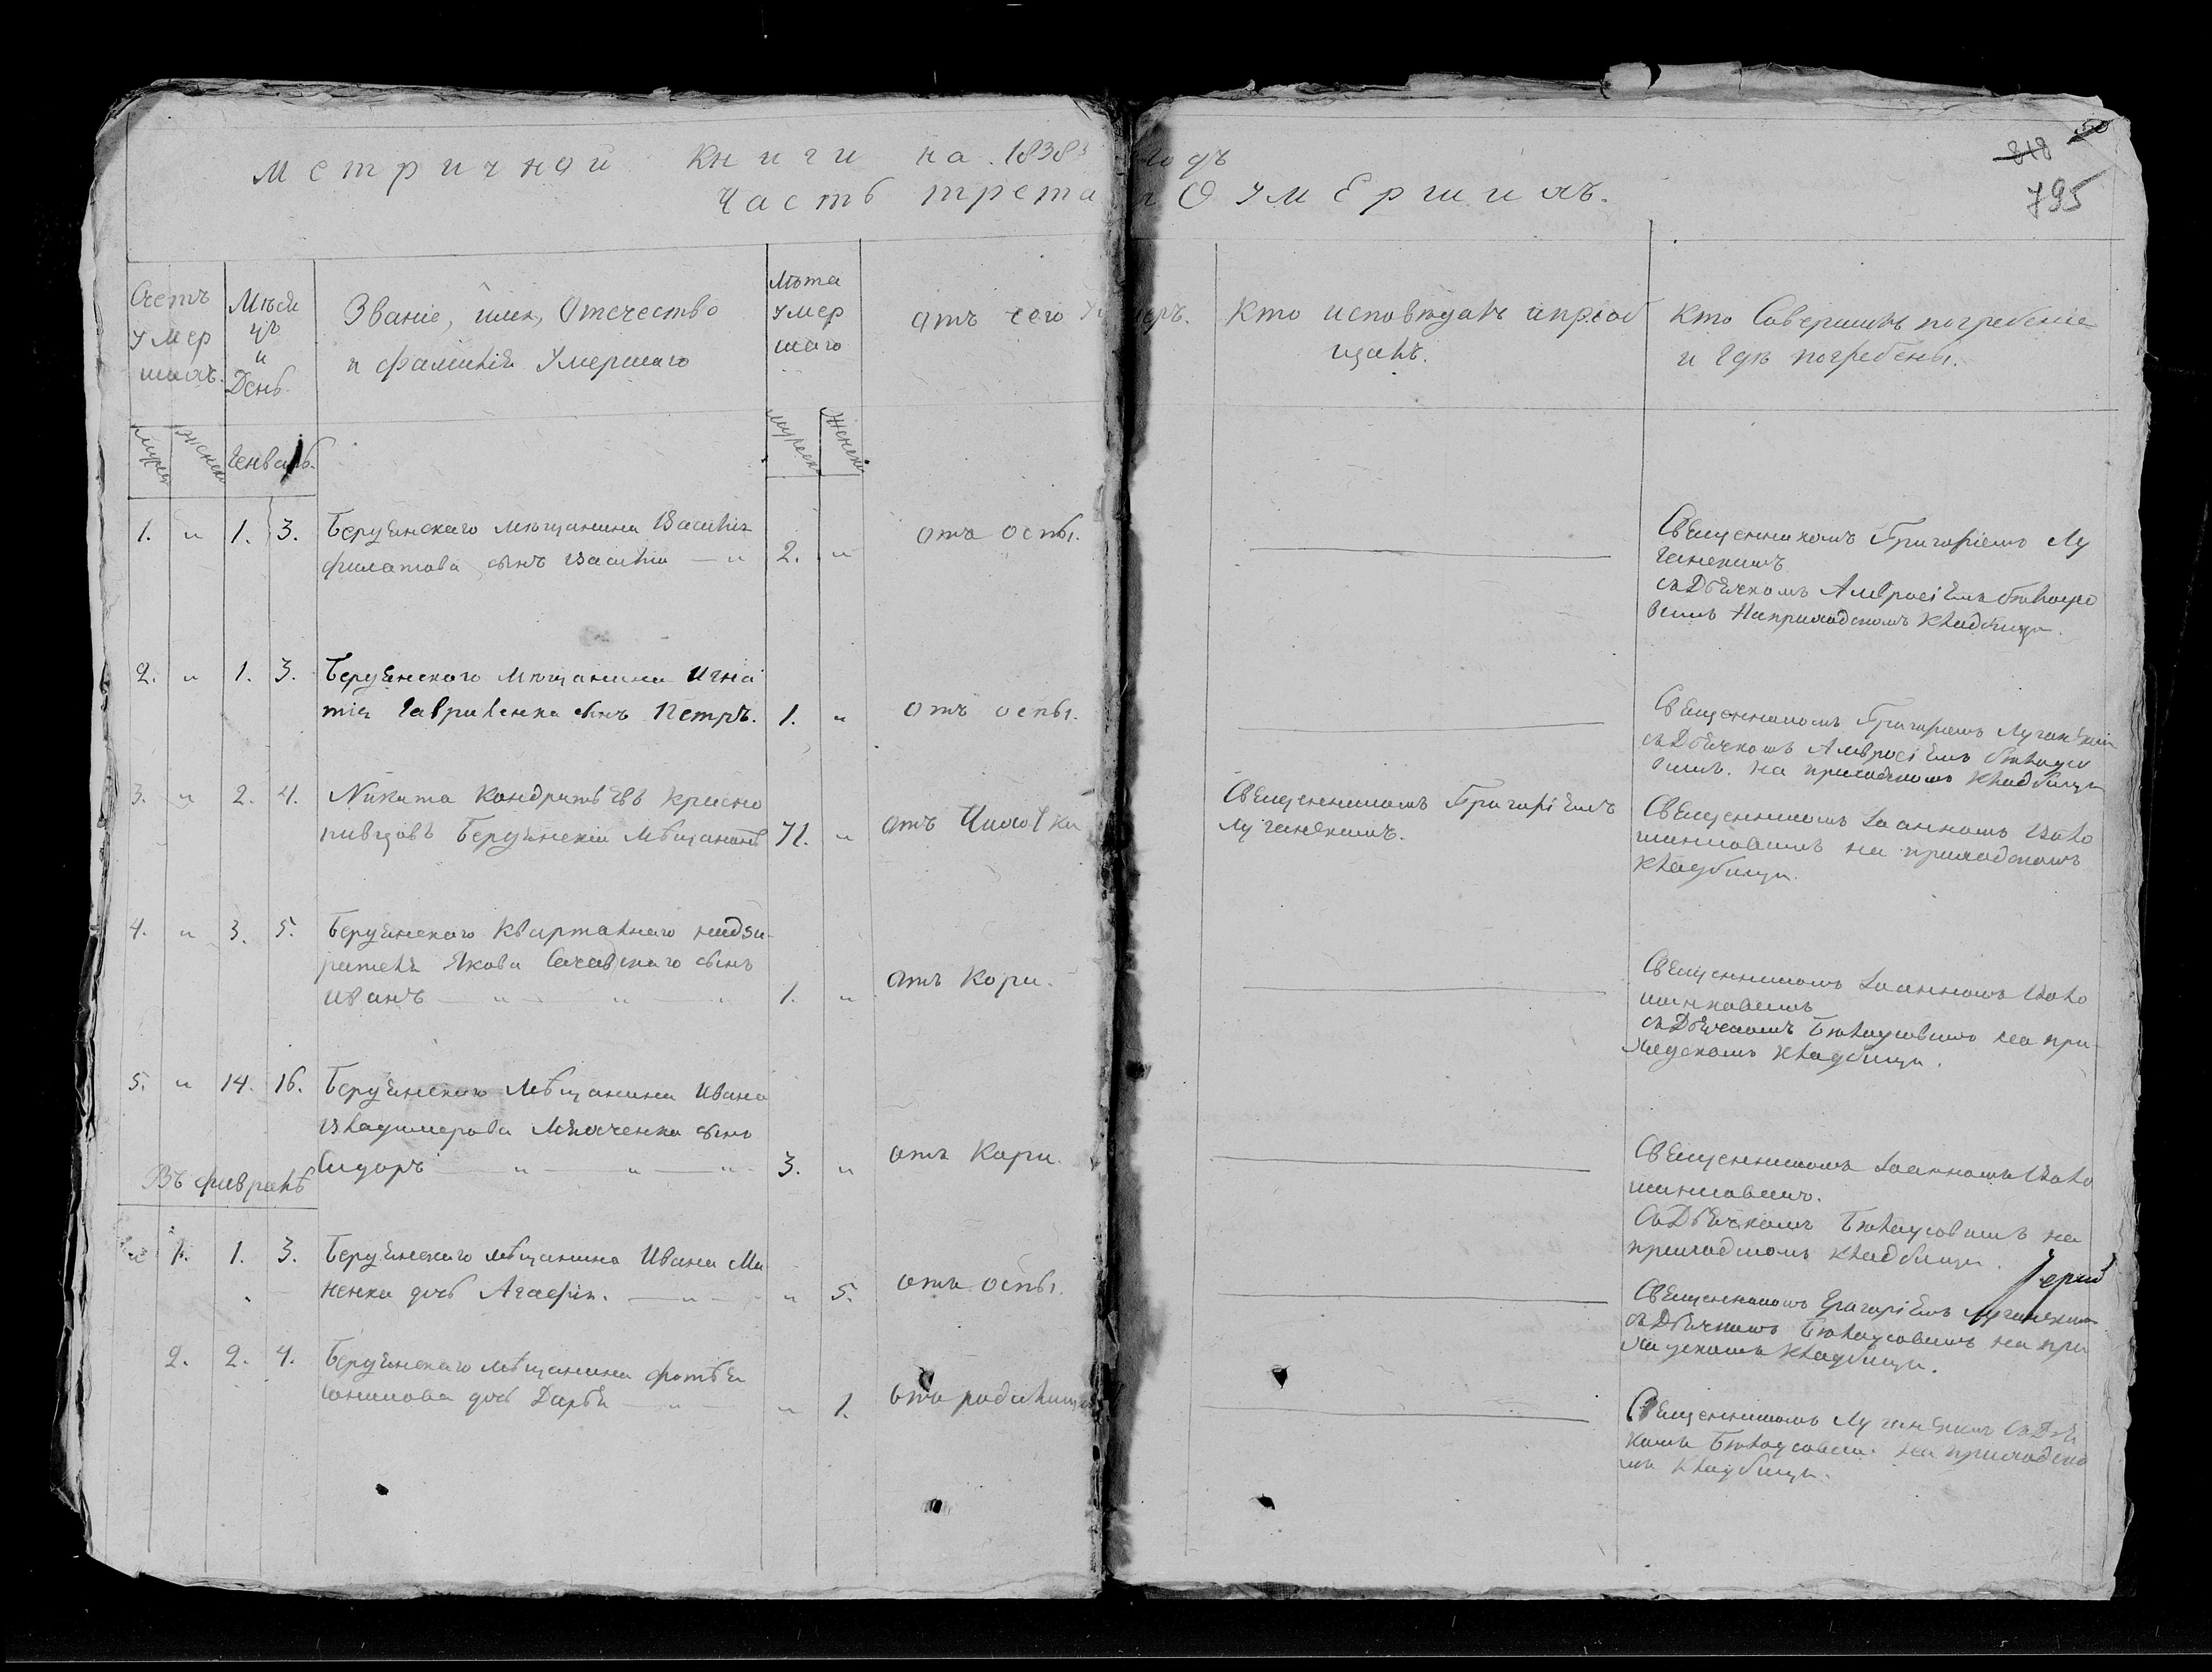 Метричной книги на 1838й годъ
Часть третая О Умершихъ.
50
818
795
Счетъ умер шихъ.
Мѣся цъ и День.
Званіе, имя, Отечество и фамилія Умершаго
Лѣта умер шаго
отъ чего Умеръ.
Кто исповѣдалъ и пріоб щалъ.
Кто Совершалъ погребеніе и гдѣ погребены.
Мужеск
Женск
Генварь.
Мужеска
Женска
1. " 1. 3. Бердянскаго мѣщанина Василія
филатова сынъ Василій — " 2. "
отъ оспы.
Священникомъ Григоріемъ Лу
ганскимъ
съ Дьячкомъ Амвросіемъ Бѣлоусо
вымъ На приходскомъ кладбищи.
2. " 1. 3. Бердянского Мѣщанина Игна
тія Гавриленка сынъ Петръ. 1. "
отъ оспы.
Священникомъ Григоріемъ Луганскимъ
съ Дьячкомъ Амвросіемъ Бѣлоусо
вимъ. на приходскомъ кладбищи
3. " 2. 4. Никита Кондратьевъ Красно
пивцовъ Бердянскій Мѣщанинъ 71. "
отъ
Священникомъ Григоріемъ
Луганскимъ.
Священникомъ Іоанномъ Воло
шиновимъ на приходскомъ
кладбищи.
4. " 3. 5. Бердянскаго Квартального надзи-
рателя Якова сынъ
Иванъ — " — " — " 1. "
отъ Кори.
Священникомъ Іоанномъ Воло
шиновимъ
съ Дьячкомъ Бѣлоусовимъ на при-
ходскомъ кладбищи.
5. " 14. 16. Бердянскаго Мѣщанина Ивана
Владимерова сынъ
Сидоръ — " — " — " 3. "
отъ Кори.
Священникомъ Іоанномъ Воло
шиновимъ.
Съ Дьячкомъ Бѣлоусовимъ на
приходскомъ кладбищи.
Въ февралѣ
" 1. 1. 3. Бердянскаго мѣщанина Ивана Ми
ненка дочь Агафія. — " — " 5.
отъ оспы.
Священникомъ Григоріемъ Луганскимъ
съ Дьячкомъ Бѣлоусовимъ на при
ходскомъ кладбищи.
2. 2. 4. Бердянскаго мѣщанина
дочь Дарья — " — " 1.
отъ родимца
Священникомъ Луганскимъ съ Дья
комъ Бѣлоусовим. на приходско
мъ кладбищи.